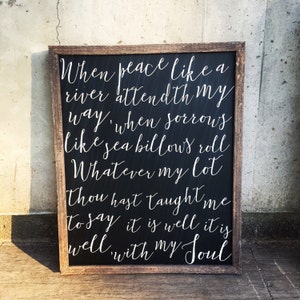 When peace like a
river attendth my
way, when sorrows
like sea billows roll
Whatever my lot
thou hast taught me
to say it is well it is
well, with my Soul